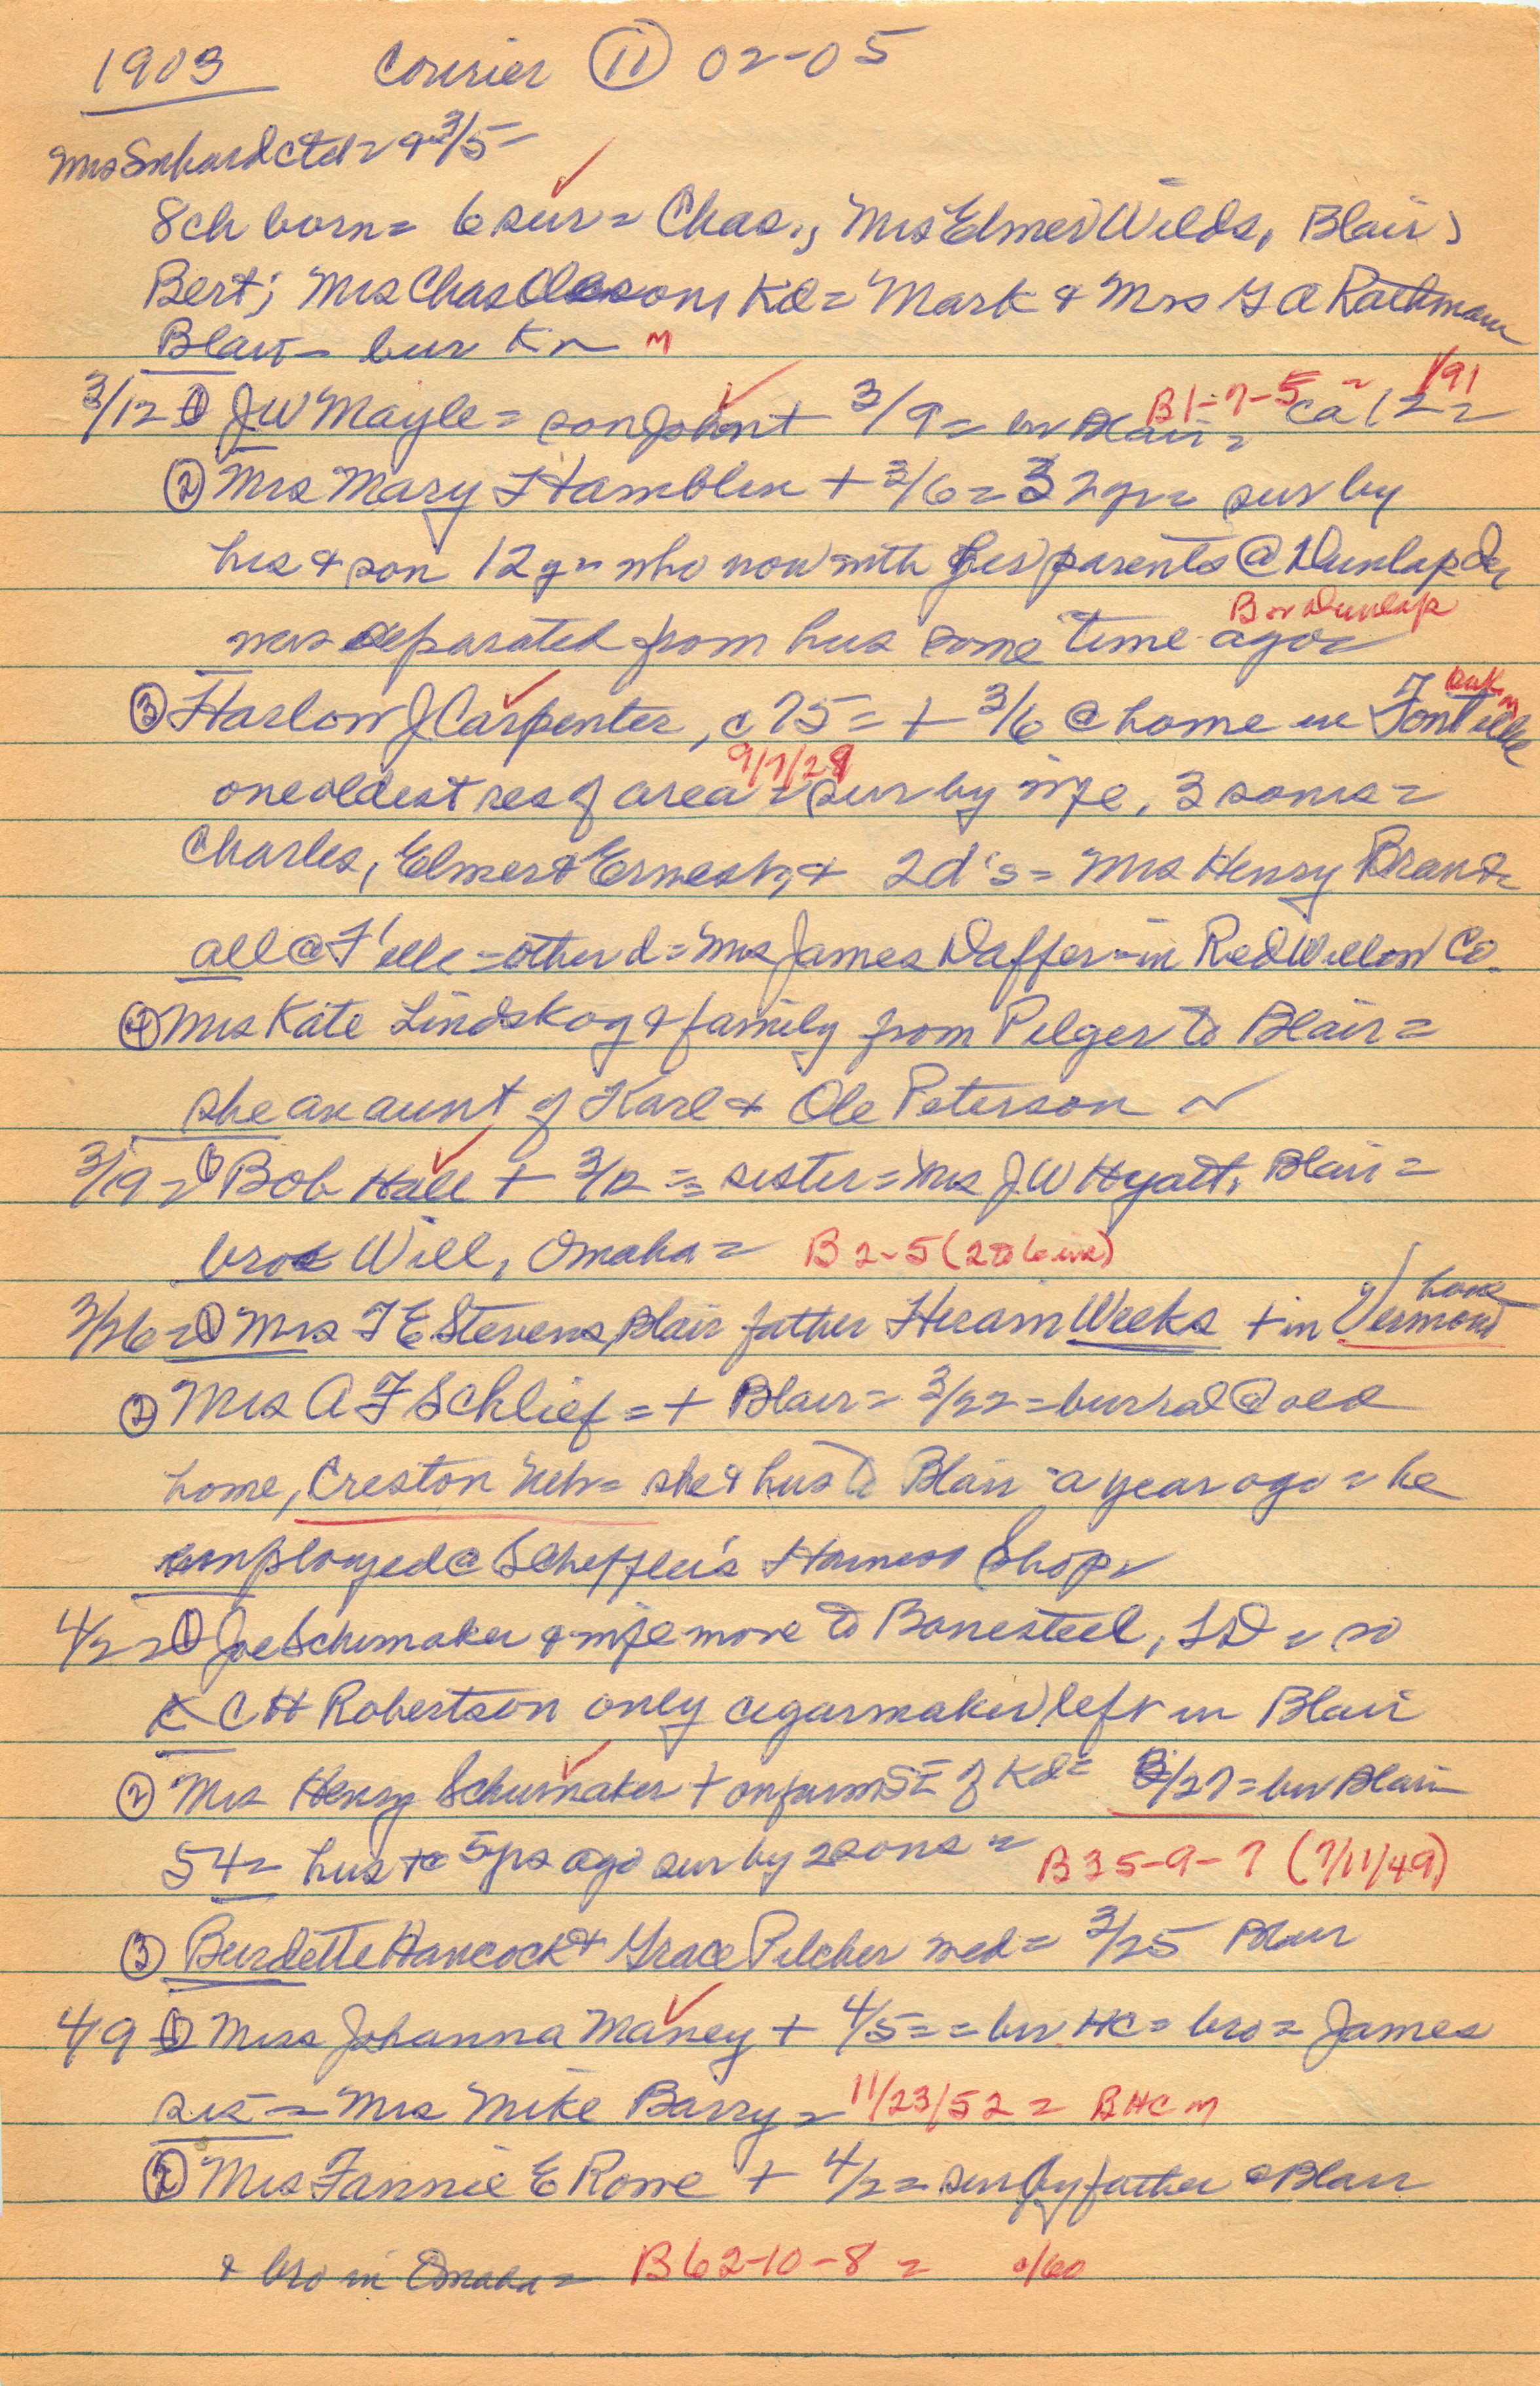 1903 Courier (11) 02-05
Mrs ctd = 3/5 =
8 ch born = 6 sur = Chas., Mrs Elmer Wilds, Blair;
Bert; Mrs Chas Kd = Mark & Mrs G A Rathmann
Blair = bur Kn M
3/12 ① J W Mayle = son John + 3/9 = bur Blair = ca 12 = B1-7-5 1/91
② Mrs Mary Hamblin + 3/6 = 32 yr = sur by
hus & son 12 y = who now with her parents @ Dunlap Ia
was separated from hus some time ago = B or Dunlap
③ Harlow J Carpenter, c 75 = + 3/6 @ home in Font'elle
one oldest res of area = sur by wife, 3 sons = 9/7/28
Charles, Elmer & Ernest, & 2 d's = Mrs Henry Brandt
all @ F'elle = other d = Mrs James Daffer = in Red Willow Co.
④ Mrs Kate Lindskog & family from Pilger to Blair =
she an aunt of Karl & Ole Peterson
3/19 = ① Bob Hall + 3/12 = sister = Mrs J W Hyatt, Blair =
bro Will, Omaha = B 2-5 (2 )
3/26 = ① Mrs F E Stevens, Blair father Hiram Weeks + in Vermont home
② Mrs A F Schlief = + Blair = 3/22 = burial @ old
home, Creston Neb = she & hus to Blair a year ago = he
employed @ Scheffler's Harness Shop
4/2 = ① Joe Schumaker & wife move to Bonesteel, SD = so
C H Robertson only cigarmaker left in Blair
② Mrs Henry Schumaker + on farm S = of Kd = 3/27 = bur Blair
54 = hus + 5 yrs ago sur by 2 sons = B35-9-7 (7/11/49)
③ Burdette Hancock & Grace Pilcher wed = 3/25 Blair
4/9 ① Miss Johanna Maney + 4/5 = = bur HC = bro = James
sis = Mrs Mike Barry = 11/23/52 = B HC M
② Mrs Fannie E Rowe + 4/2 = sur by father @ Blair
& bro in Omaha = B62-10-8 = /60